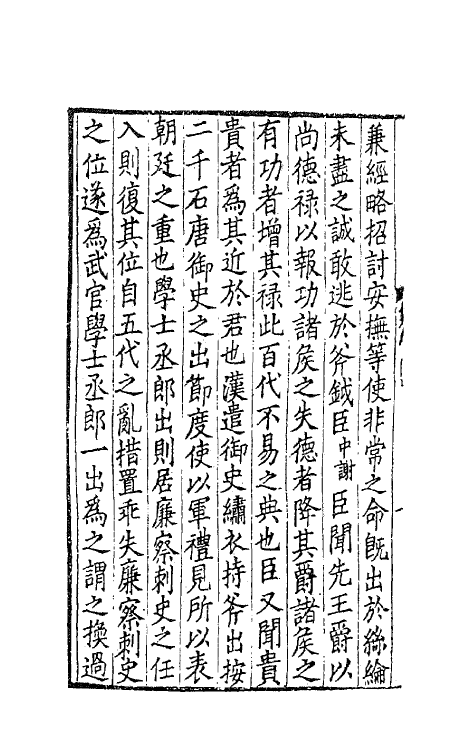 兼經略招討安撫等使非常之命既出於絲綸
未盡之誠敢逃於斧鉞臣中謝臣聞先王爵以
尚德禄以報功諸侯之失德者降其爵諸侯之
有功者增其禄此百代不易之典也臣又聞貴
貴者爲其近於君也漢遣御史繡衣持斧出按
二千石唐御史之出節度使以軍禮見所以表
朝廷之重也學士丞郎出則居廉察刺史之任
入則復其位自五代之亂措置乖失廉察刺史
之位遂爲武官學士丞郎一出爲之謂之換過